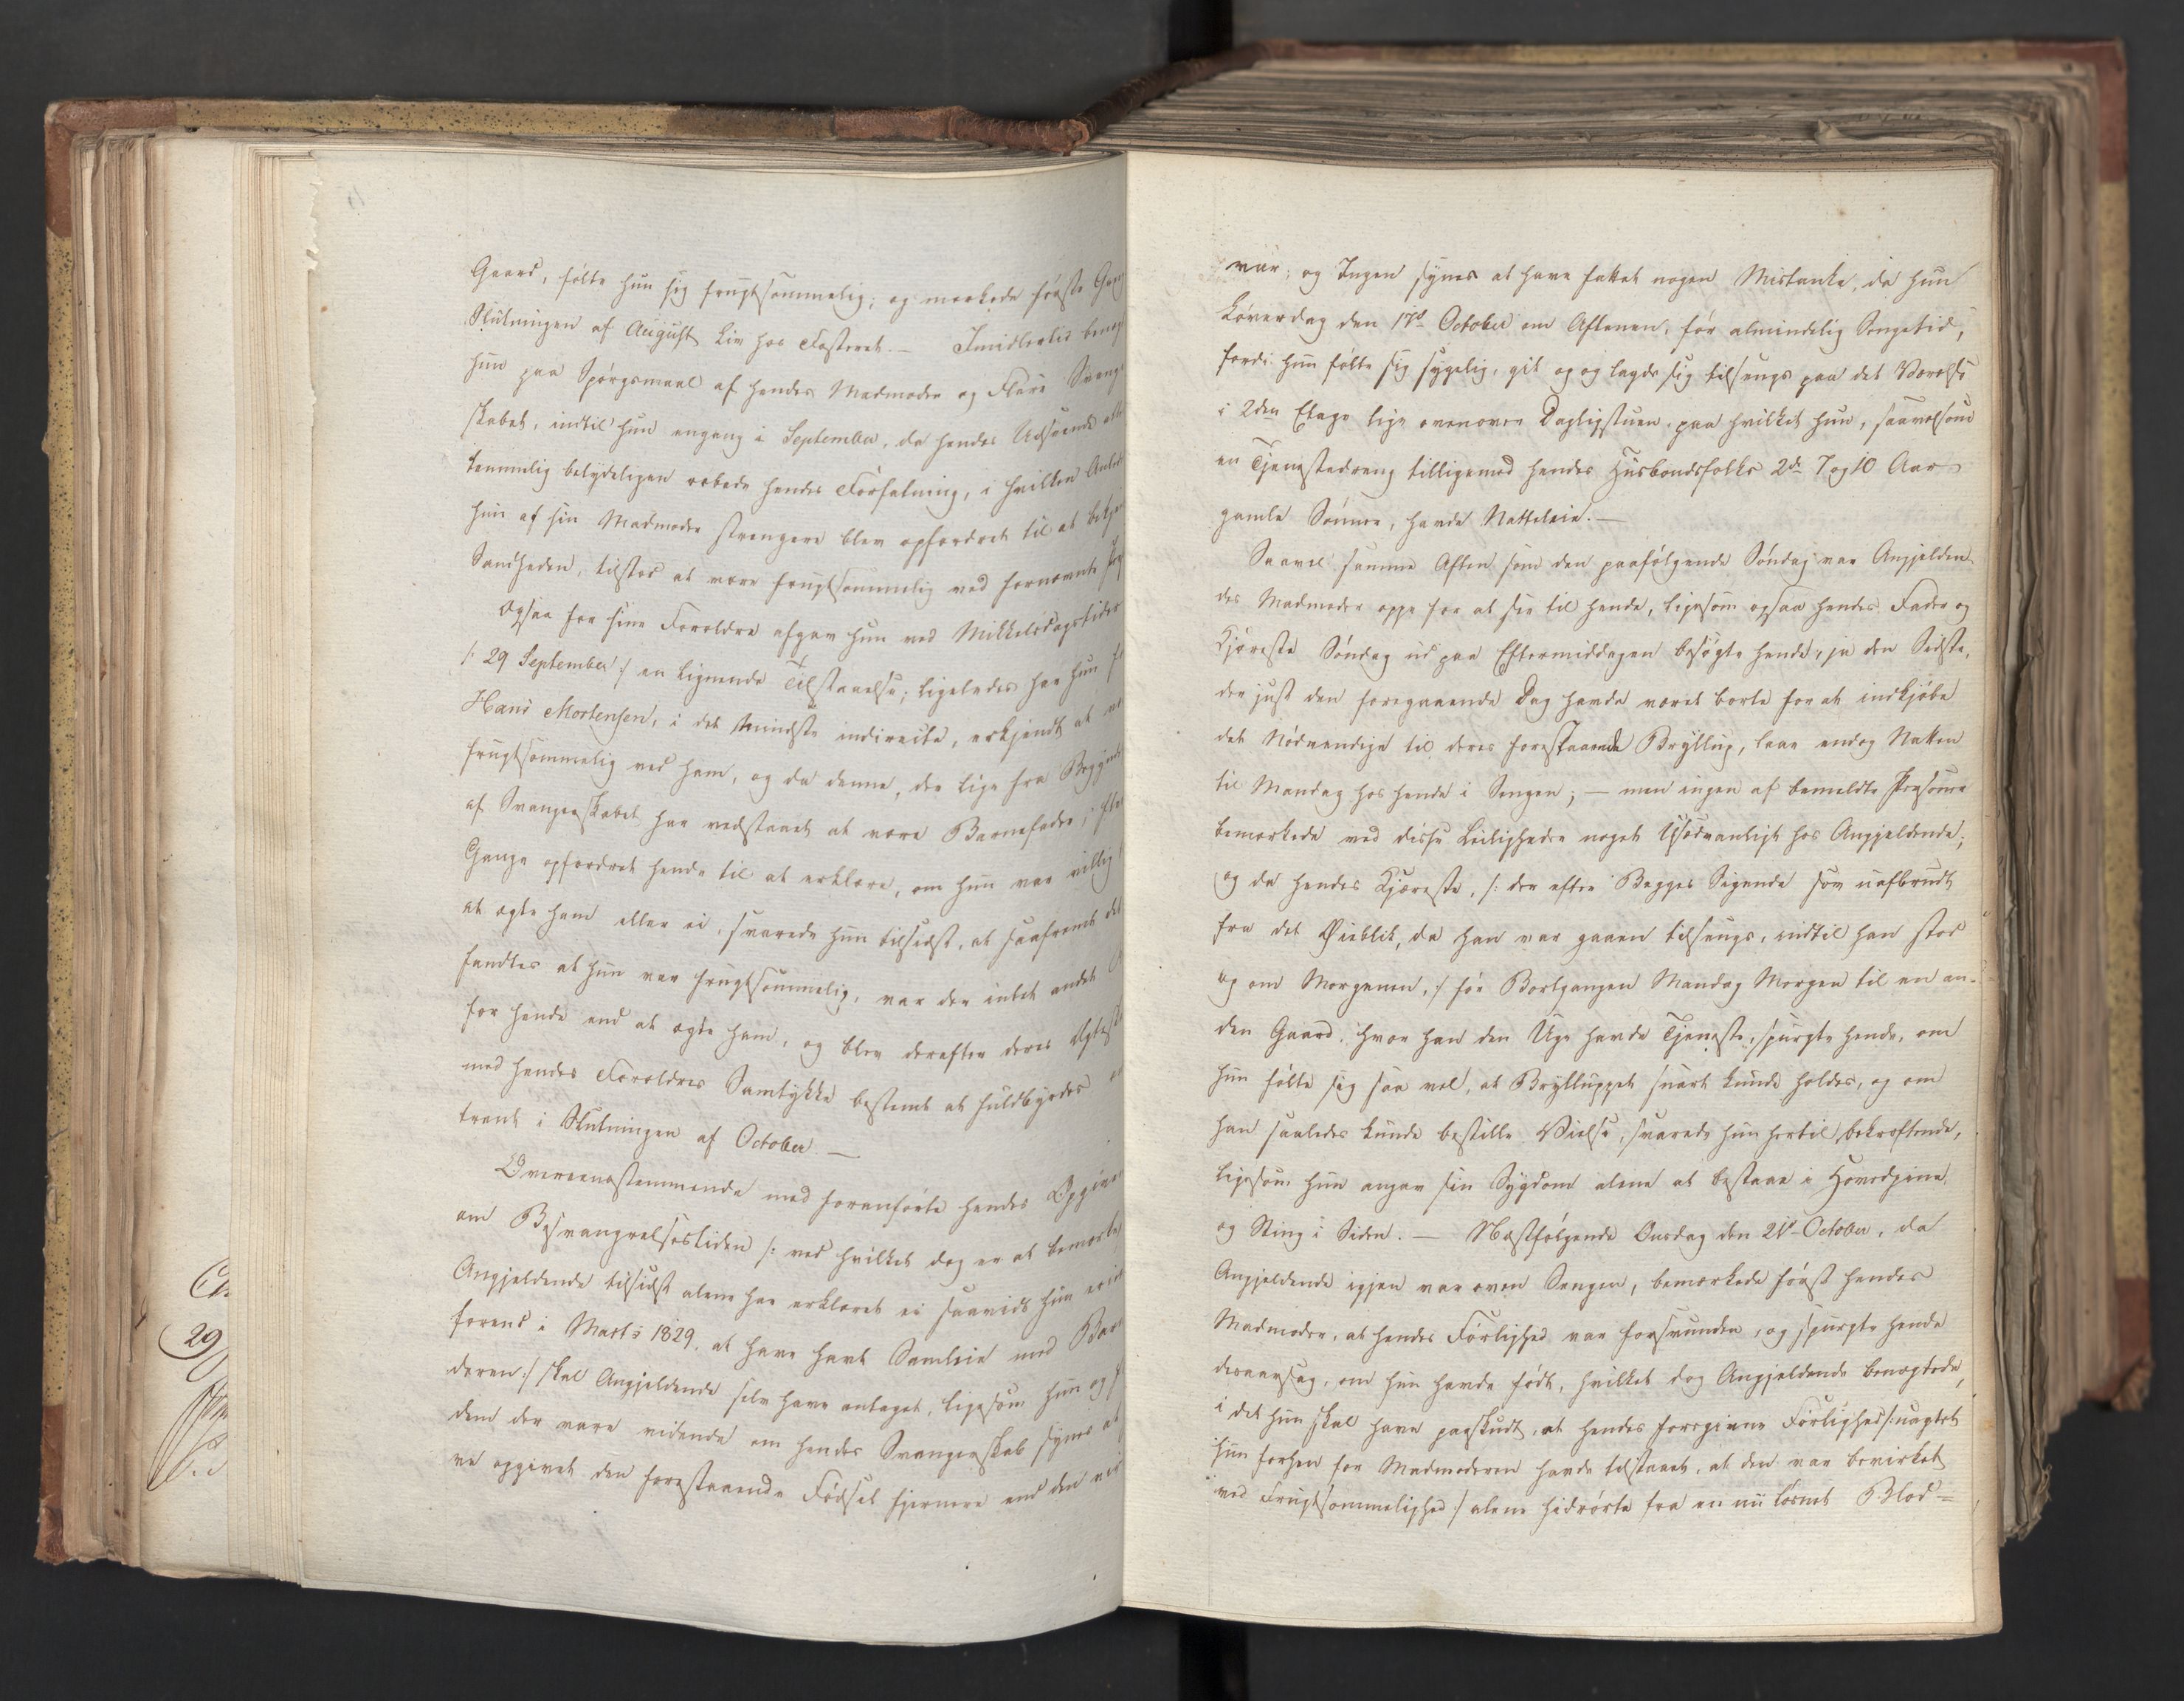 Gaard, følte hun sig frugtsommelig; og mærkede første Gang
Slutningen af August Liv hos Fosteret. — Imidlertid benæg
hun paa Spørgsmaal af hendes Madmoder og Flere Svang
skabet, indtil hun engang i September, da hendes Udseende
temmelig betydeligen røbede hendes Forfatning, i hvilken Anled
hun af sin Madmoder strengere blev opfordret til at bekje
Sandheden, tilstod at være frugtsommelig ved fornævnte
Ogsaa for sine Forældre afgav hun ved Mikkelsdagstider
/: 29 September :/ en lignende Tilstaaelse; ligeledes har hun
Hans Mortensen, i det mindste indirecte, erkjendt at
frugtsommelig ved ham, og da denne, der lige fra Begynd
af Svangerskabet har vedstaaet at være Barnefader, i
Gange opfordret hende til at erklære, om hun var villig
at ægte ham eller ei, svarede hun tilsidst, at saafremt det
fandtes at hun var frugtsommelig, var der intet andet
for hende end at ægte ham, og blev derefter deres Ægtesk
med hendes Forældres Samtykke bestemt at fuldbyrdes
trent i Slutningen af October. —
Overeensstemmende med foranførte hendes Opgiv
om Besvangrelsestiden /: ved hvilket dog er at bemærke
Angjeldende tilsidst alene har erklæret ei saavidt hun erin
førend i Marts 1829. at have havt Samleie med Bar
deren :/ skal Angjeldende selv have antaget, ligesom hun og
dem der vare vidende om hendes Svangerskab synes at
ve opgivet den forestaaende Fødsel fjernere end den
var; og Ingen synes at have fattet nogen Mistanke, da hun
Løverdag den 17de October om Aftenen, før almindelig Sengetid,
fordi hun følte sig sygelig, gik op og lagde sig tilsengs paa det Værelse
i 2den Etage lige ovenover Dagligstuen, paa hvilket hun, saavelsom
en Tjenestedreng tilligemed hendes Husbondsfolks 2de 7 og 10 Aar
gamle Sønner, havde Natteleie. —
Saavel samme Aften som den paafølgende Søndag var Angjelden
des Madmoder oppe for at see til hende, ligesom ogsaa hendes Fader og
Kjæreste Søndag ud paa Eftermiddagen besøgte hende, ja den Sidste,
der just den foregaaende Dag havde været borte for at indkjøbe
det Nødvendige til deres forestaaende Bryllup, laae endog Natten
til Mandag hos hende i Sengen; — men ingen af bemeldte Personer
bemærkede ved disse Leiligheder noget Usædvanligt hos Angjeldende;
og da hendes Kjæreste, /: der efter Begges Sigende sov uafbrudt
fra det Øieblik, da han var gaaen tilsengs, indtil han stod
op om Morgenen, :/ før Bortgangen Mandag Morgen til en an-
den Gaard, hvor han den Uge havde Tjeneste, spurgte hende, om
hun følte sig saa vel, at Brylluppet snart kunde holdes, og om
han saaledes kunde bestille Vielse, svarede hun hertil bekræftende,
ligesom hun angav sin Sygdom alene at bestaae i Hovedpine
og Sting i Siden. — Næstfølgende Onsdag den 21de October, da
Angjeldende igjen var oven Sengen, bemærkede først hendes
Madmoder, at hendes Førlighed var forsvunden, og spurgte hende
desaarsag, om hun havde født, hvilket dog Angjeldende benægtede,
i det hun skal have paaskudt, at hendes foregivne Førlighed /: uagtet
hun forhen for Madmoderen havde tilstaaet, at den var bevirket
ved Frugtsommelighed :/ alene hidrørte fra en nu løsnet Blod=
29